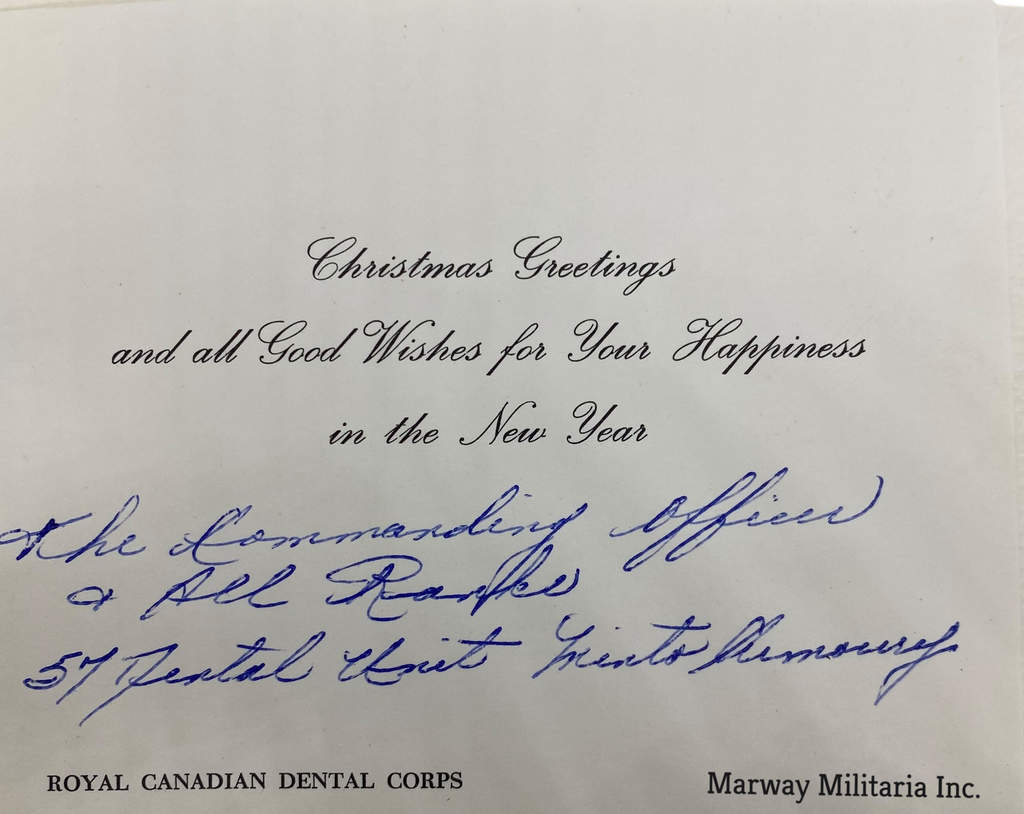 Christmas Greetings
and all Good Wishes for Your Happiness
in the New Year
The Commanding Officer
& All Ranks
57 Dental Unit Minto Armoury
ROYAL CANADIAN DENTAL CORPS
Marway Militaria Inc.